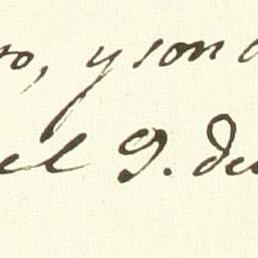 ro, y son
el 9. de